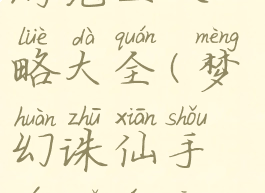 lüè dà quán mèng
略大全(梦
huàn zhū xiān shǒu
幻诛仙手